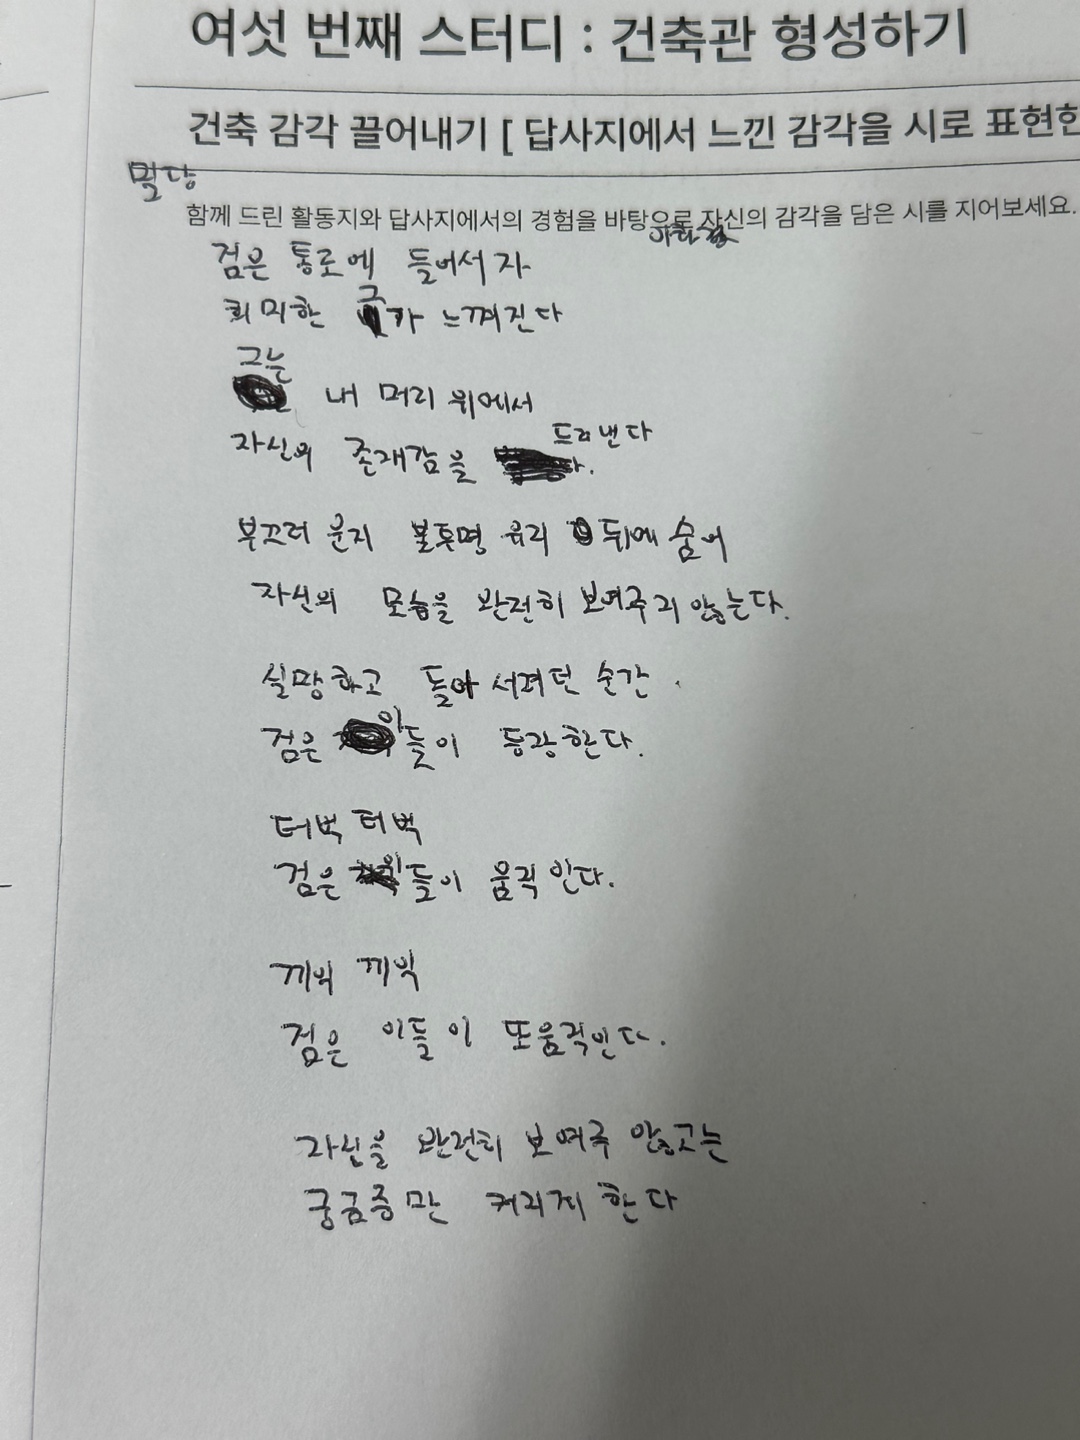 여섯 번째 스터디 : 건축관 형성하기
건축 감각 끌어내기 [ 답사지에서 느낀 감각을 시로 표현한
밀당
함께 드린 활동지와 답사지에서의 경험을 바탕으로 자신의 감각을 담은 시를 지어보세요.
검은 통로에 들어서자
희미한 그가 느껴진다
그는
내 머리 위에서
자신의 존재감을 드러낸다
부끄러운지 불투명 유리 뒤에 숨어
자신의 모습을 완전히 보여주지 않는다.
실망하고 돌아서려던 순간
검은 이들이 등장한다.
터벅 터벅
검은 이들이 움직인다.
끼빅 끼빅
검은 이들이 또 움직인다.
자신을 완전히 보여주 않고는
궁금증만 커리지 한다